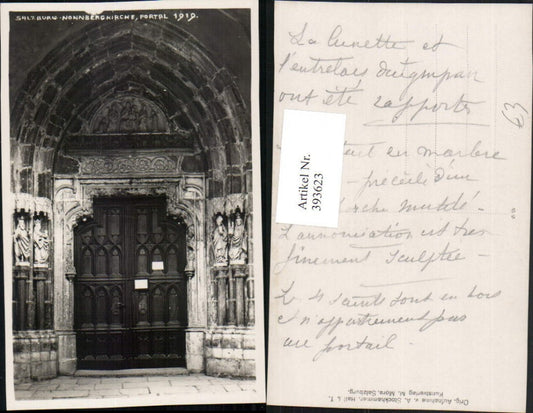 SALZBURG-NONNBERGKIRCHE, PORTAL 1919.
La lunette et
l'entrelacs du tympan
ont été rapportés
63
Artikel Nr.
393623
en marbre
précédé d'un
L'annonciation est très
finement sculptée -
Les 4 saints sont en bois
et n'appartiennent pas
au portail.
Orig. Aufnahme v. A. Stockhammer, Hall i. T.
Kunstverlag M. Mora, Salzburg.